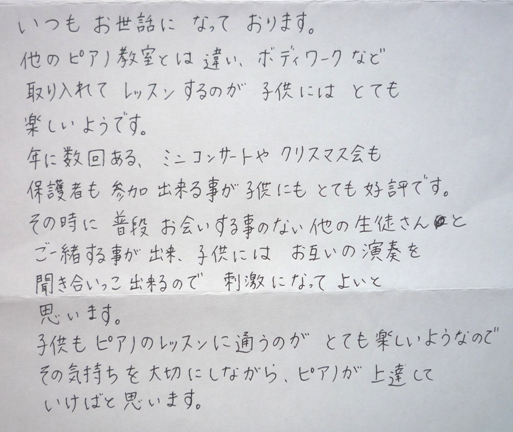 いつも お世話に なって おります。
他のピアノ教室とは 違い、ボディワークなど
取り入れて レッスンするのが 子供には とても
楽しいようです。
年に数回ある、ミニコンサートや クリスマス会も
保護者も 参加 出来る事が 子供にも とても 好評です。
その時に 普段 お会いする事のない 他の 生徒さんと
ご一緒する事が 出来、子供には お互いの 演奏を
聞き合いっこ 出来るので 刺激になって よいと
思います。
子供も ピアノのレッスンに 通うのが とても 楽しいようなので
その気持ちを 大切にしながら、ピアノが 上達して
いけばと 思います。